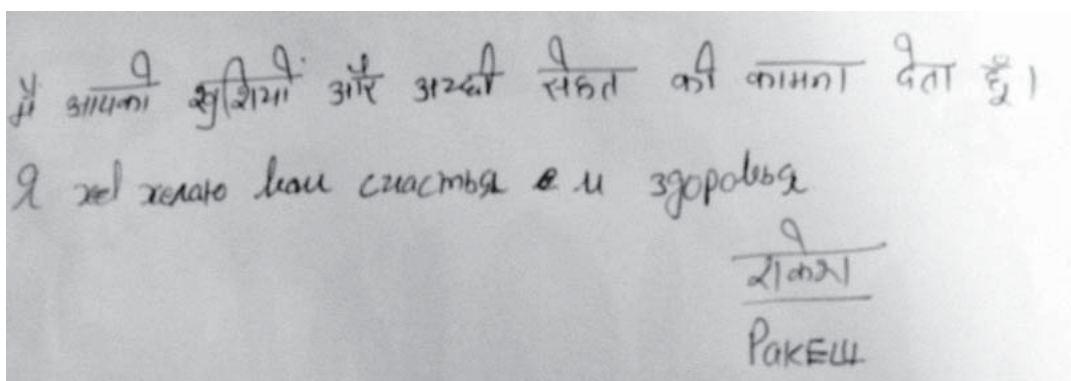 मैं आपको खुशियों और अच्छी सेहत की कामना देता हूँ।
Я желаю вам счастья и здоровья
राकेश
Ракеш